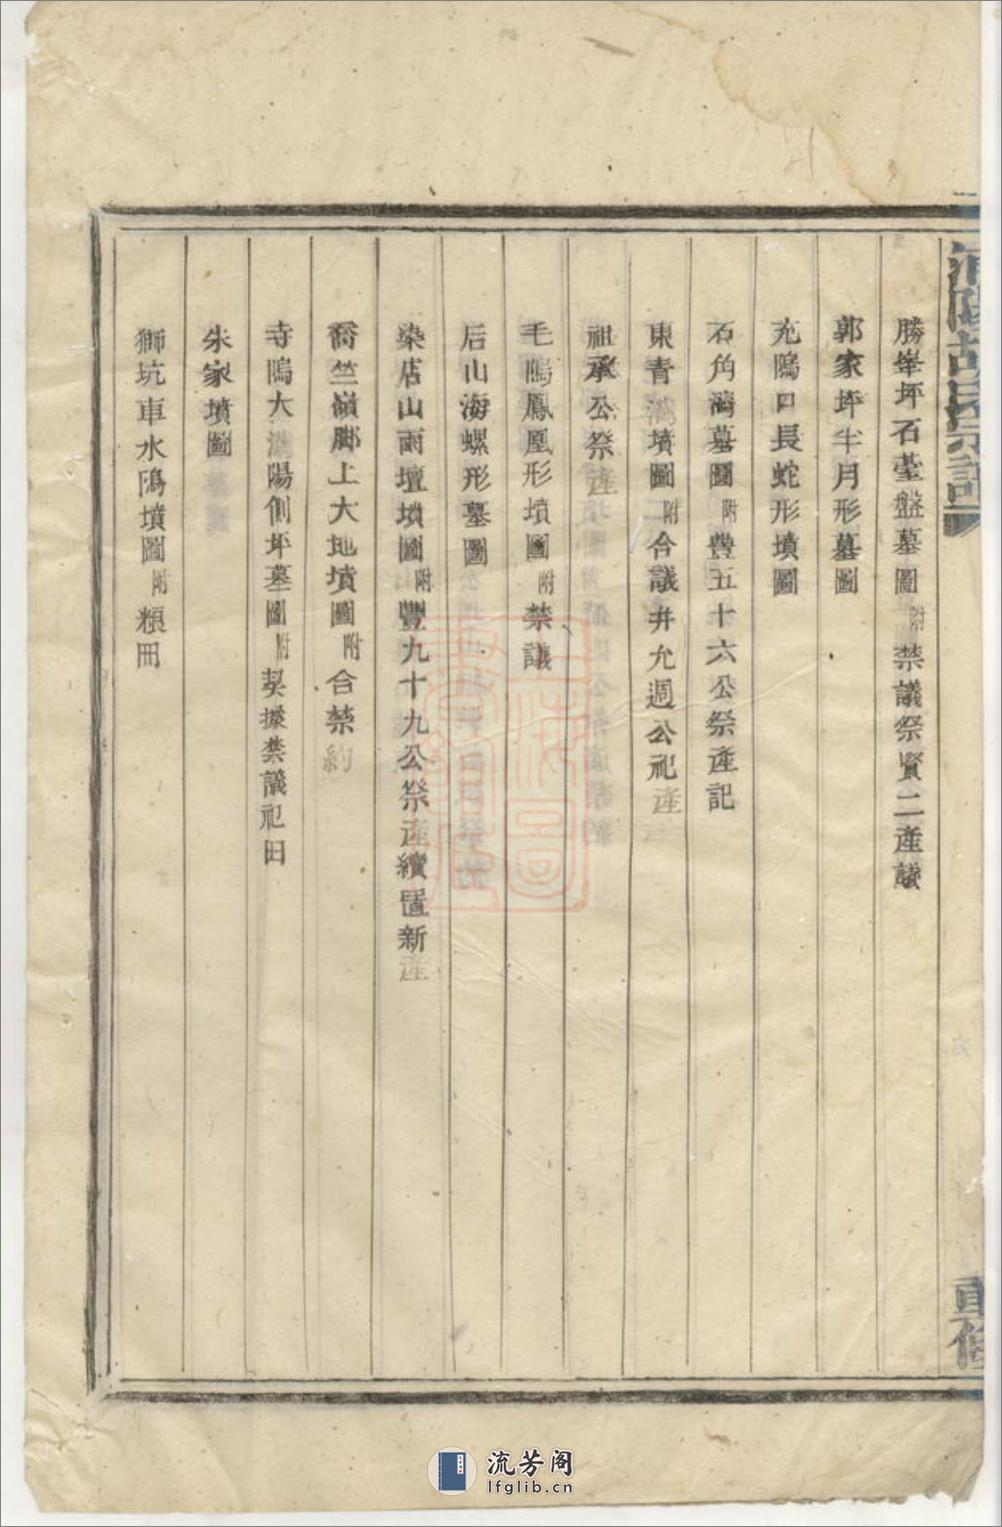 勝峯坪石臺盤墓圖附禁議祭賢二產議
郭家坪半月形墓圖
充隖口長蛇形墳圖
石角灣墓圖附豊五十六公祭產記
東青灣墳圖二附合議并允週公祀產
祖承公祭產
毛隖鳳凰形墳圖附禁議
后山海螺形墓圖
染店山雨壇墳圖附豐九十九公祭產續置新產
裔竺嶺脚上大地墳圖附合禁約
寺隖大灣陽側坪墓圖附契據禁議祀田
朱家墳圖
獅坑車水隖墳圖附粮冊
胡氏宗譜
重修
流芳阁
lfglib.cn